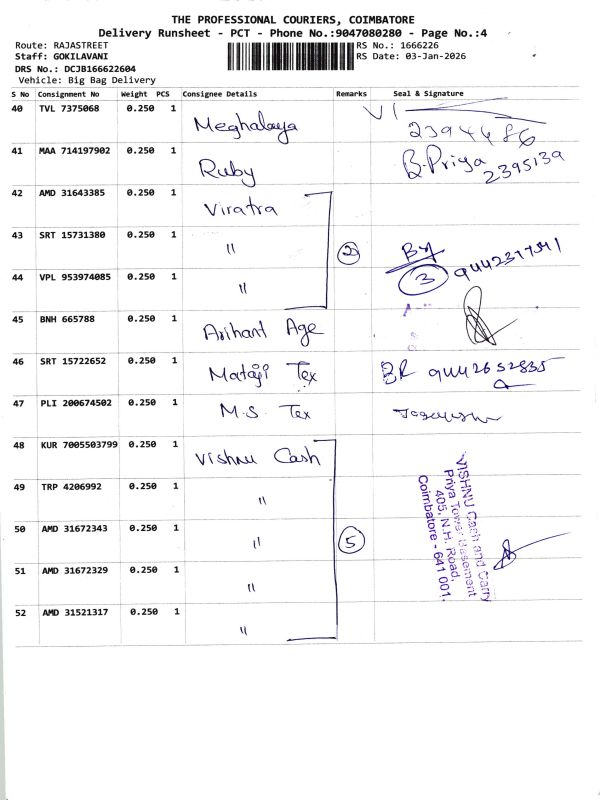 THE PROFESSIONAL COURIERS, COIMBATORE
Delivery Runsheet - PCT - Phone No.:9047080280 - Page No.:4
Route: RAJASTREET RS No.: 1666226
Staff: GOKILAVANI RS Date: 03-Jan-2026
DRS No.: DCJB166622604
Vehicle: Big Bag Delivery
S No Consignment No Weight PCS Consignee Details Remarks Seal & Signature
40 TVL 7375068 0.250 1 Meghalaya 2394486
41 MAA 714197902 0.250 1 Ruby B.Priya 2395139
42 AMD 31643385 0.250 1 Viratra
43 SRT 15731380 0.250 1 " 2
44 VPL 953974085 0.250 1 " 3
45 BNH 665788 0.250 1 Arihant Age
46 SRT 15722652 0.250 1 Mataji Tex BR 9442652835
47 PLI 200674502 0.250 1 M.S. Tex
48 KUR 7005503799 0.250 1 Vishnu Cash
49 TRP 4206992 0.250 1 "
50 AMD 31672343 0.250 1 " 5
51 AMD 31672329 0.250 1 "
52 AMD 31521317 0.250 1 "
VISHNU Cash and Carry
Priya Tower Basement
405, N.H. Road,
Coimbatore - 641 001.